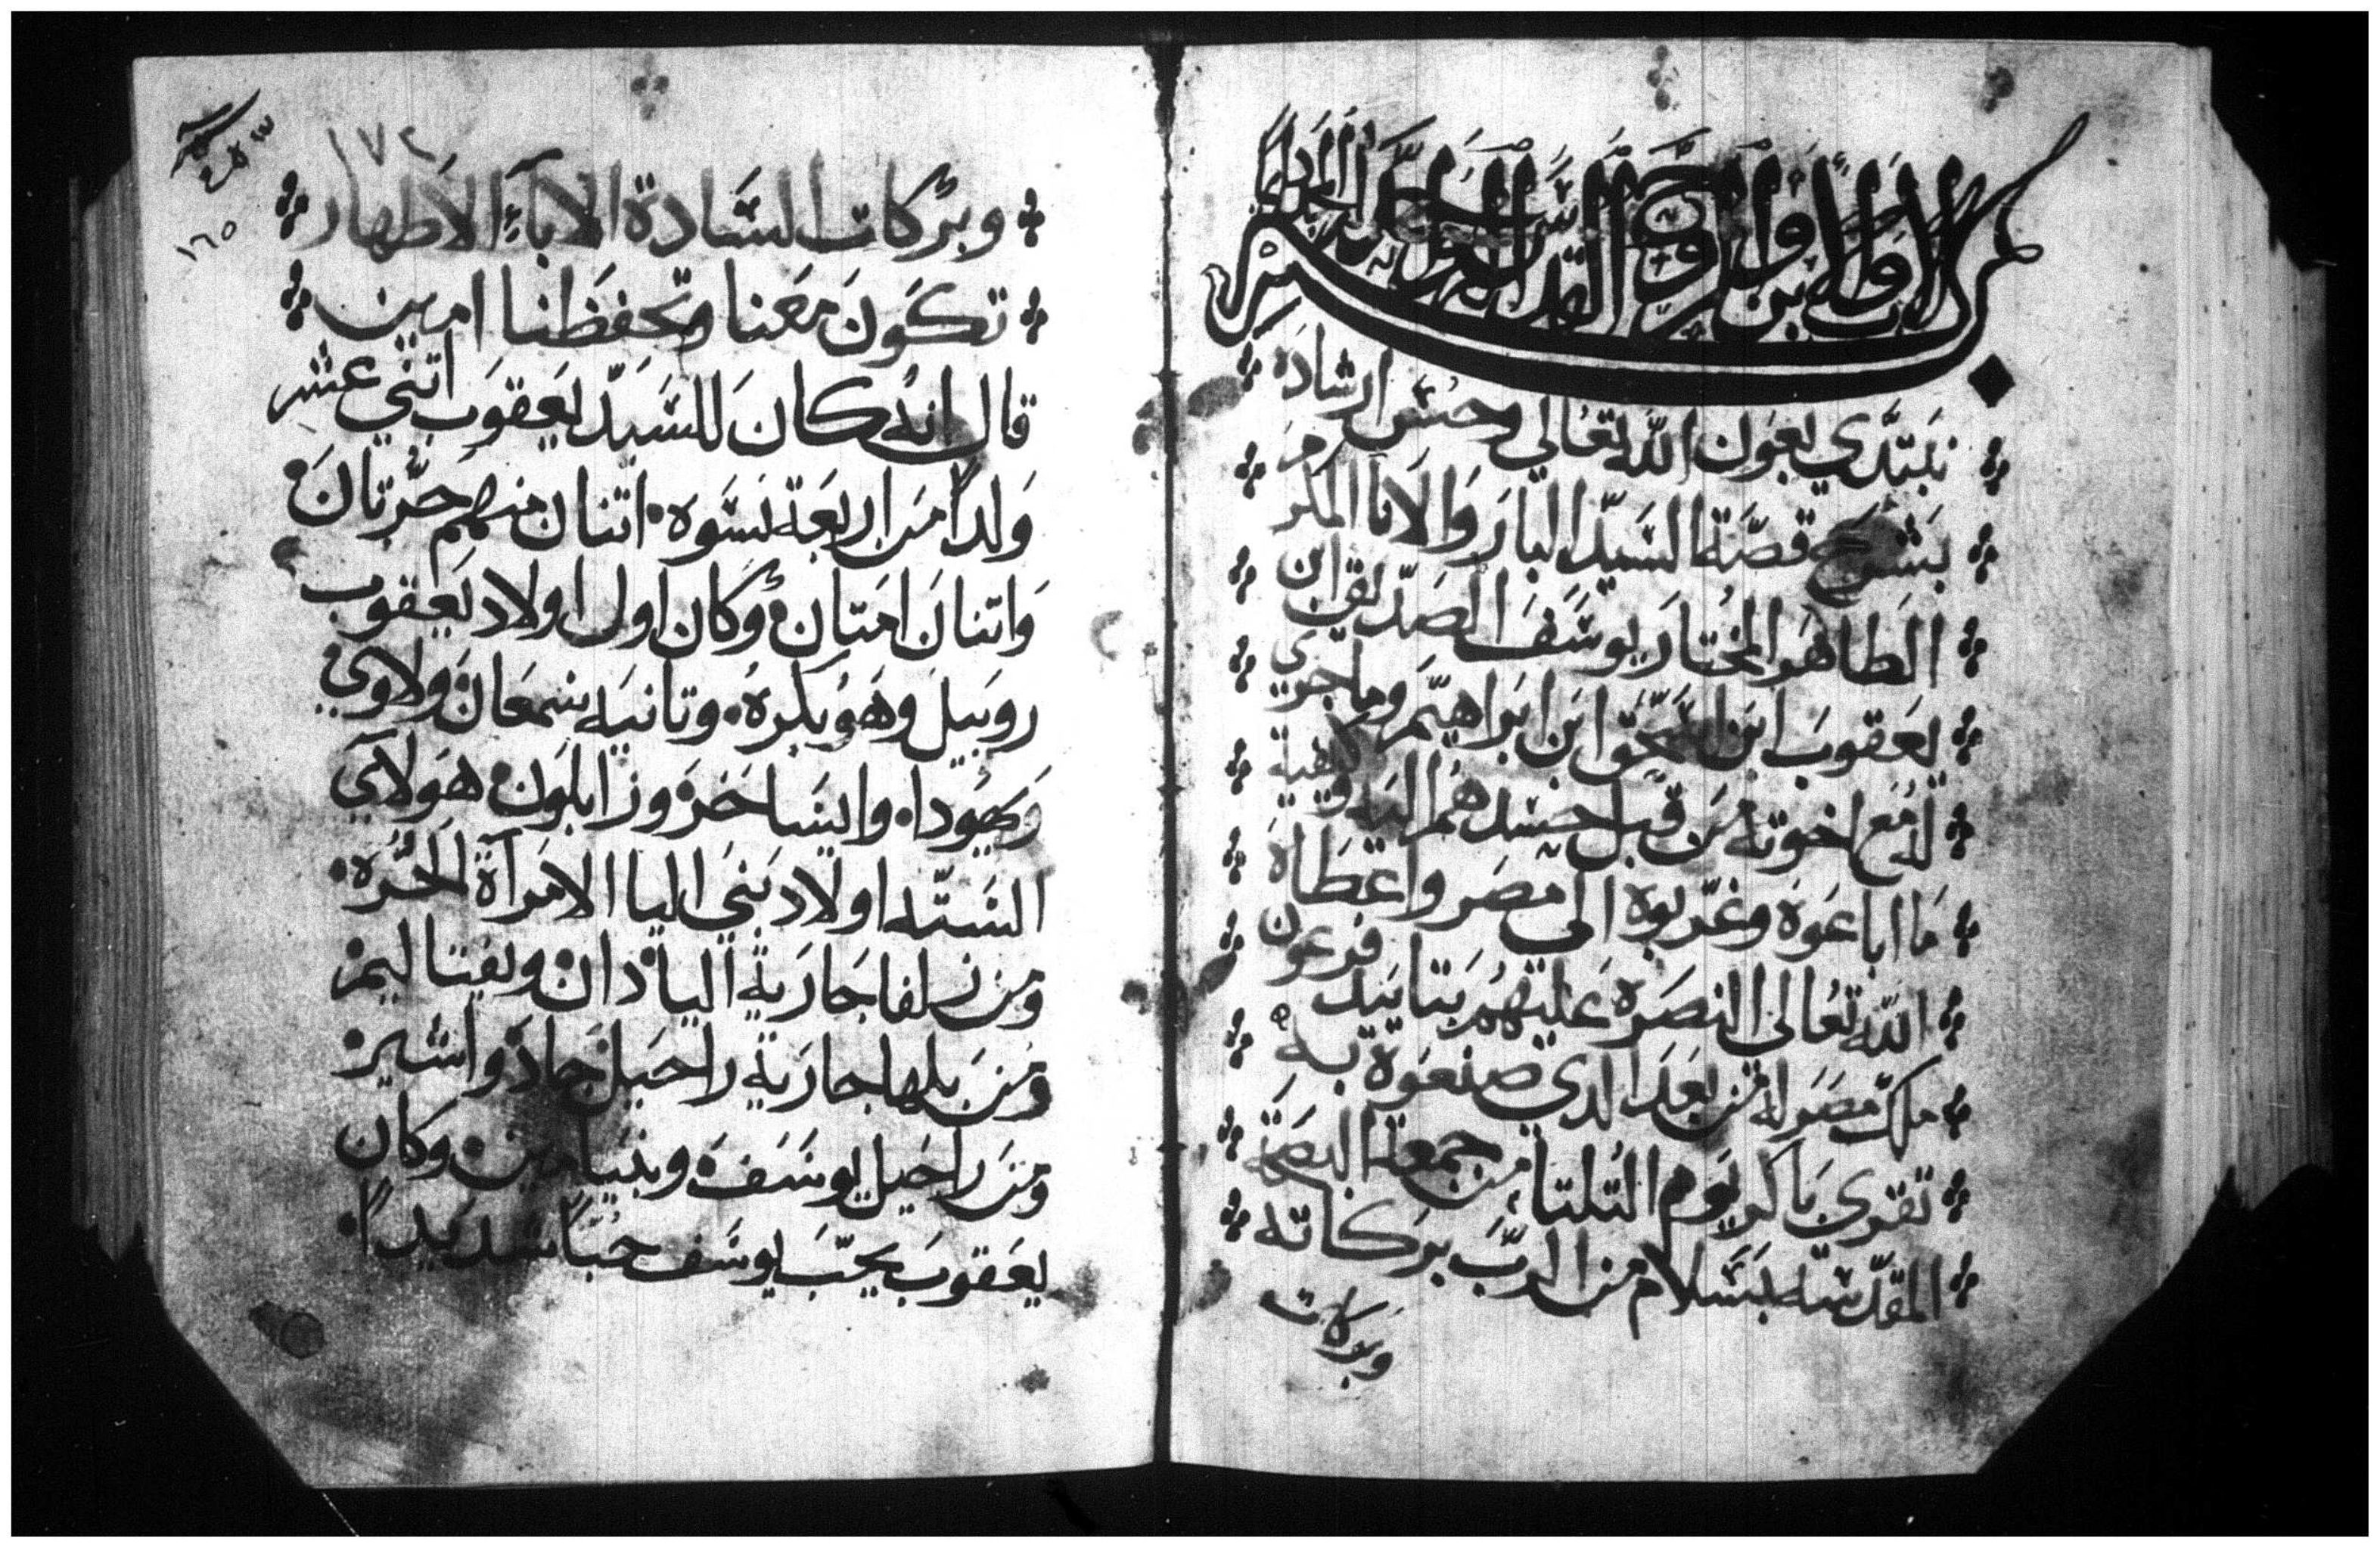 بسم الاب والابن والروح القدس الاله الواحد
نبتدي بعون الله تعالى وحسن ارشاده
بشرح قصة السيد البار والانا المكرم
الطاهر المختار يوسف الصديق ابن
يعقوب ابن اسحق ابن ابراهيم وما جرى
له مع اخوته من قبل حسدهم اليه وكيفية
ما اباعوه وغربوه الى مصر واعطاه
الله تعالى النصره عليهم بتاييد فرعون
ملك مصر له من بعد الدي صنعوه به
تقرى باكر يوم التلتا من جمعة البصخة
المقدسه بسلام من الرب بركاته
وبركات
١٧٢
١٦٥
وبركات السادة الاباء الاطهار
تكون معنا وتحفظنا امين
قال انه كان للسيد يعقوب اتني عشر
ولداً من اربعة نسوه اتنان منهم حرتان
واتنان امتان وكان اول اولاد يعقوب
روبيل وهو بكره وتانيه شمعان ولاوي
ويهودا وايساخر وزابلون هولاي
السته اولاد بني اليا الامرآة الحره
ومن زلفا جارية اليا دان ونفتاليم
ومن بلها جارية راحيل جاد واشير
ومن راحيل يوسف وبنيامين وكان
يعقوب يحب يوسف حباً شديداً